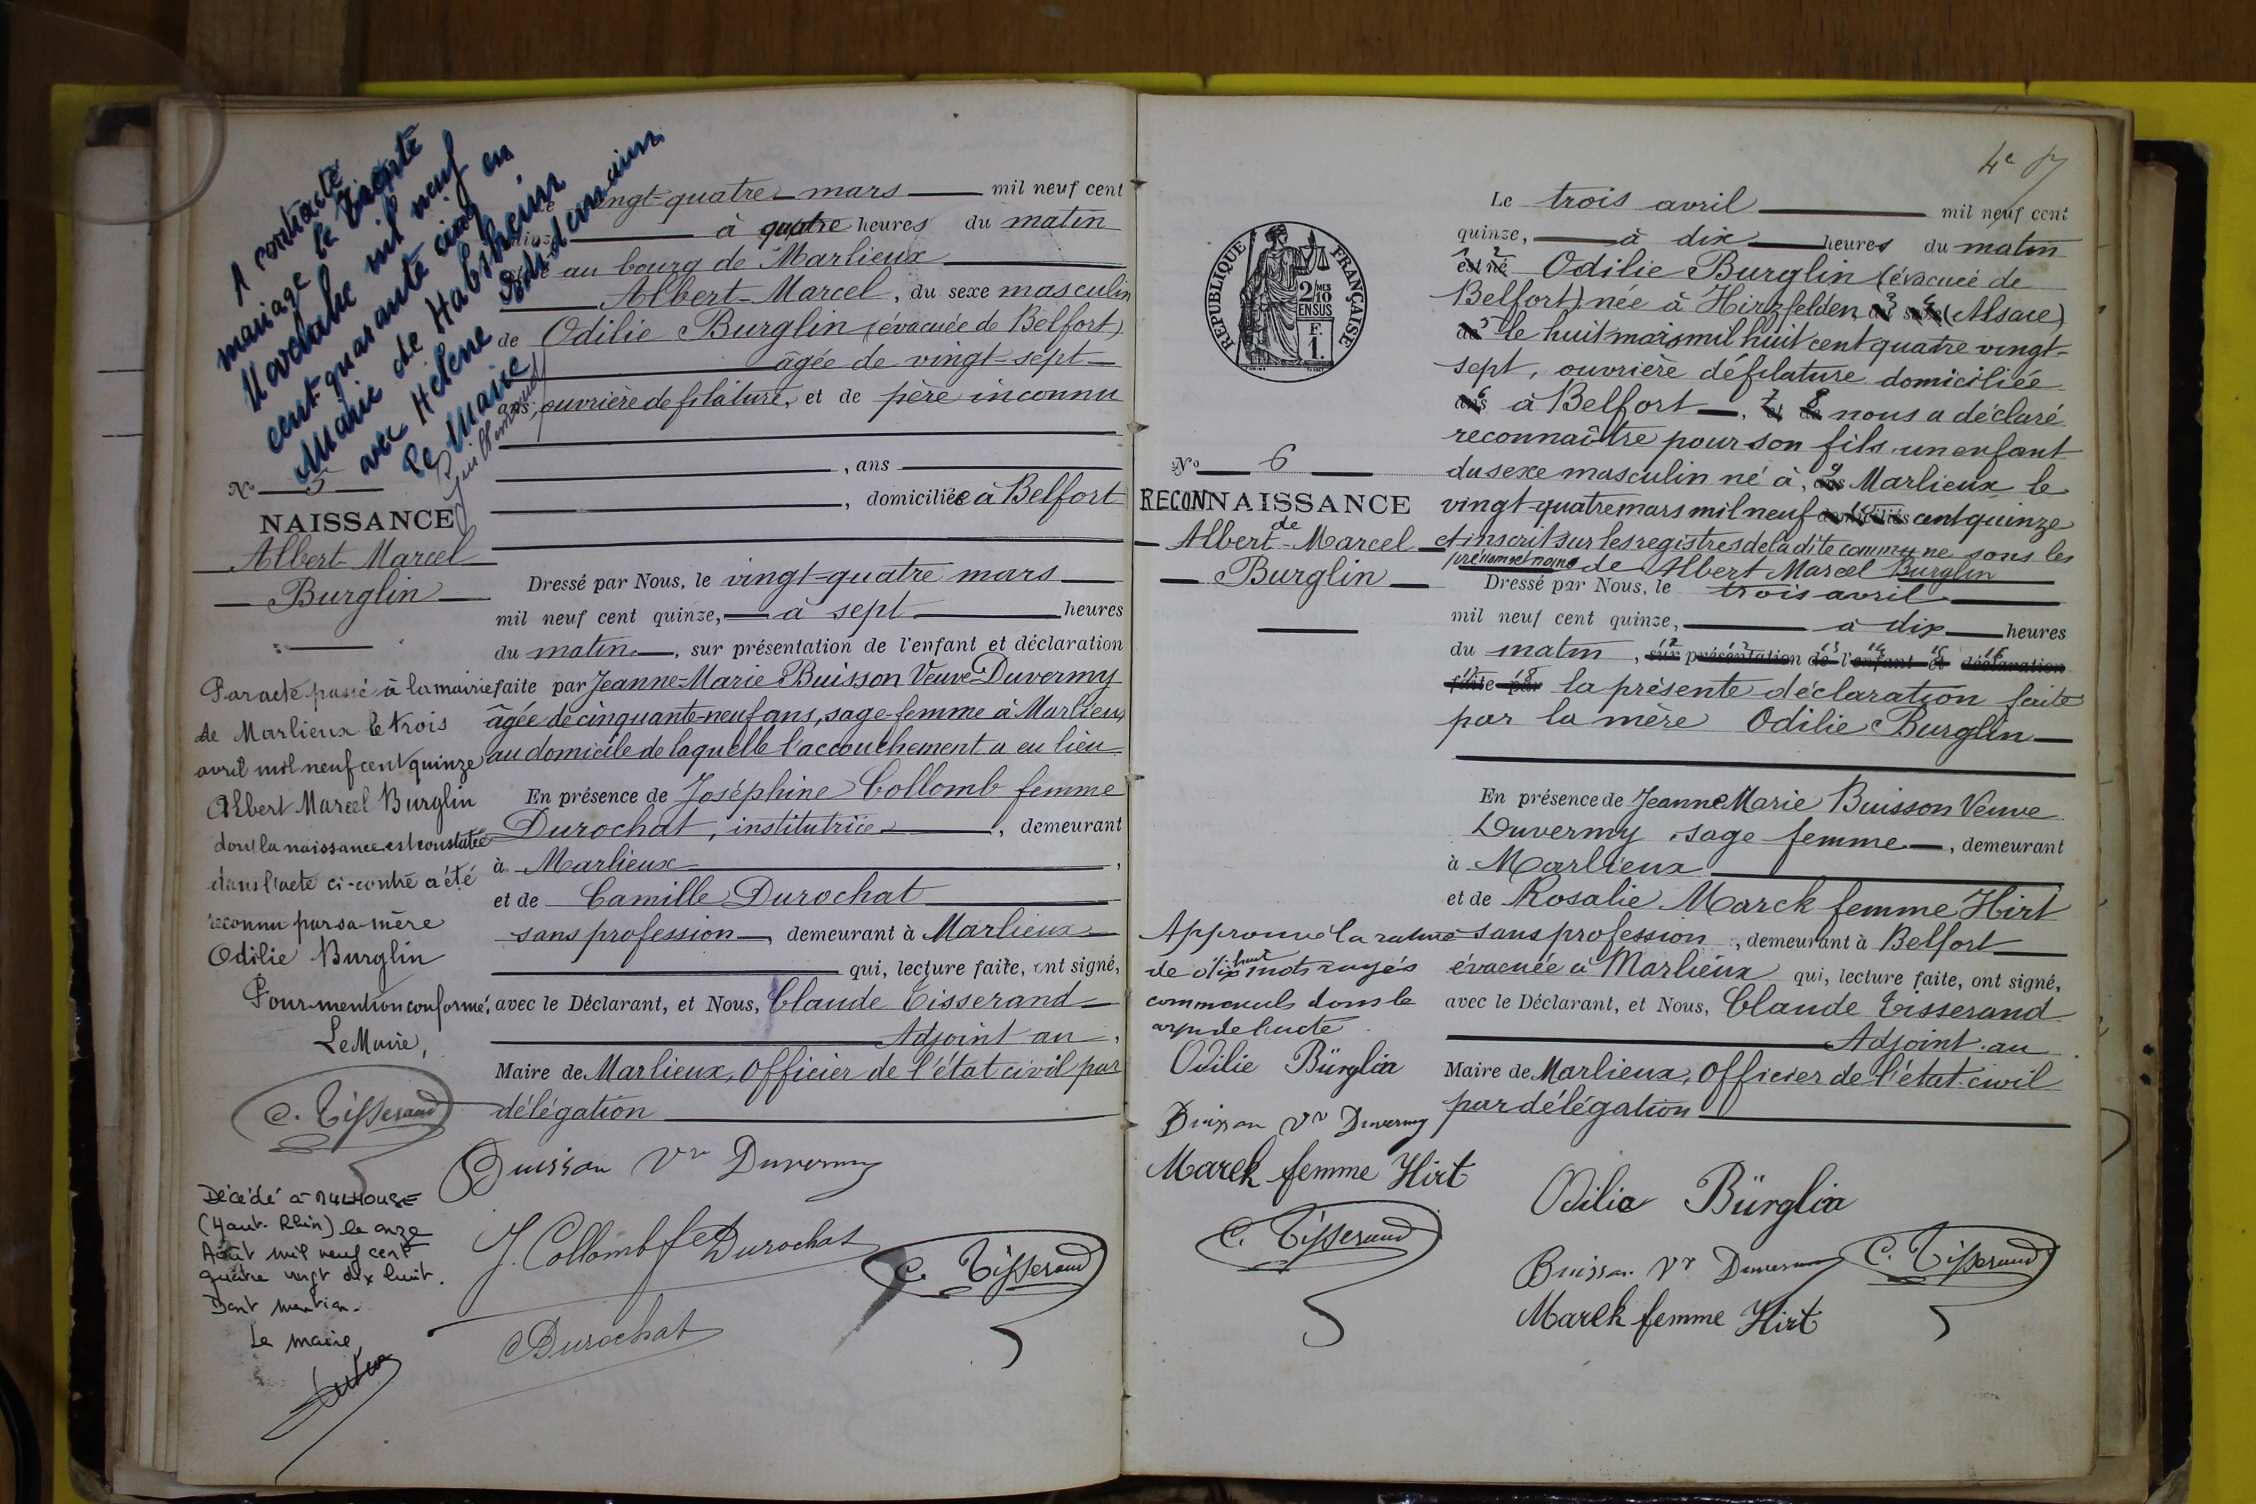 A contracté
mariage le trente
Novembre mil neuf
cent quarante cinq en
Mairie de Habsheim
avec Hélène
Le Maire
No 5
NAISSANCE
Albert-Marcel
Burglin
Par acte passé à la mairie
de Marlieux le trois
avril mil neuf cent quinze
Albert Marcel Burglin
dont la naissance est constatée
dans l'acte ci-contre a été
reconnu par sa mère
Odilie Burglin
Pour mention conforme,
Le Maire,
C. Tisserand
Décédé à MULHOUSE
(Haut-Rhin) le onze
Août mil neuf cent
quatre vingt dix huit.
Dont mention.
Le maire
vingt-quatre mars mil neuf cent
à quatre heures du matin
au bourg de Marlieux
Albert-Marcel, du sexe masculin
de Odilie Burglin (évacuée de Belfort)
âgée de vingt-sept
ans, ouvrière de filature, et de père inconnu
, ans
, domiciliée à Belfort
Dressé par Nous, le vingt-quatre mars
mil neuf cent quinze, à sept heures
du matin, sur présentation de l'enfant et déclaration
faite par Jeanne-Marie Buisson Veuve Duvermy
âgée de cinquante-neuf ans, sage-femme à Marlieux
au domicile de laquelle l'accouchement a eu lieu
En présence de Joséphine Collomb femme
Durochat, institutrice, demeurant
à Marlieux,
et de Camille Durochat
sans profession, demeurant à Marlieux
qui, lecture faite, ont signé,
avec le Déclarant, et Nous, Claude Tisserand
Adjoint au,
Maire de Marlieux, Officier de l'état civil par
délégation
Buisson Vve Duvermy
J. Collomb fe Durochat
C. Tisserand
C Durochat
4e
RÉPUBLIQUE FRANÇAISE
2/10 MES
EN SUS
F.
1.
No 6
RECONNAISSANCE
de
Albert-Marcel
Burglin
Le trois avril mil neuf cent
quinze, à dix heures du matin
est né Odilie Burglin (évacuée de
Belfort) née à Hirzfelden, (Alsace)
le huit mars mil huit cent quatre vingt-
sept, ouvrière de filature domiciliée
ans à Belfort, et de nous a déclaré
reconnaître pour son fils un enfant
du sexe masculin né à, ans Marlieux le
vingt-quatre mars mil neuf domiciliés cent quinze
et inscrit sur les registres de la dite commune sous les
prénoms et noms de Albert Marcel Burglin
Dressé par Nous, le trois avril
mil neuf cent quinze, à dix heures
du matin, sur présentation de l'enfant et déclaration
faite par la présente déclaration faite
par la mère Odilie Burglin
En présence de Jeanne Marie Buisson Veuve
Duvermy sage femme, demeurant
à Marlieux
et de Rosalie Marck femme Hirt
sans profession, demeurant à Belfort
évacuée à Marlieux qui, lecture faite, ont signé,
avec le Déclarant, et Nous, Claude Tisserand
Adjoint au
Maire de Marlieux, Officier de l'état civil
par délégation
Approuvé la rature
de dix huit mots rayés
dans le
de l'acte.
Odilie Bürglin
Buisson Vve Duvermy
Marck femme Hirt
C. Tisserand
Odilie Bürglin
Buisson Vve Duvermy
C. Tisserand
Marck femme Hirt